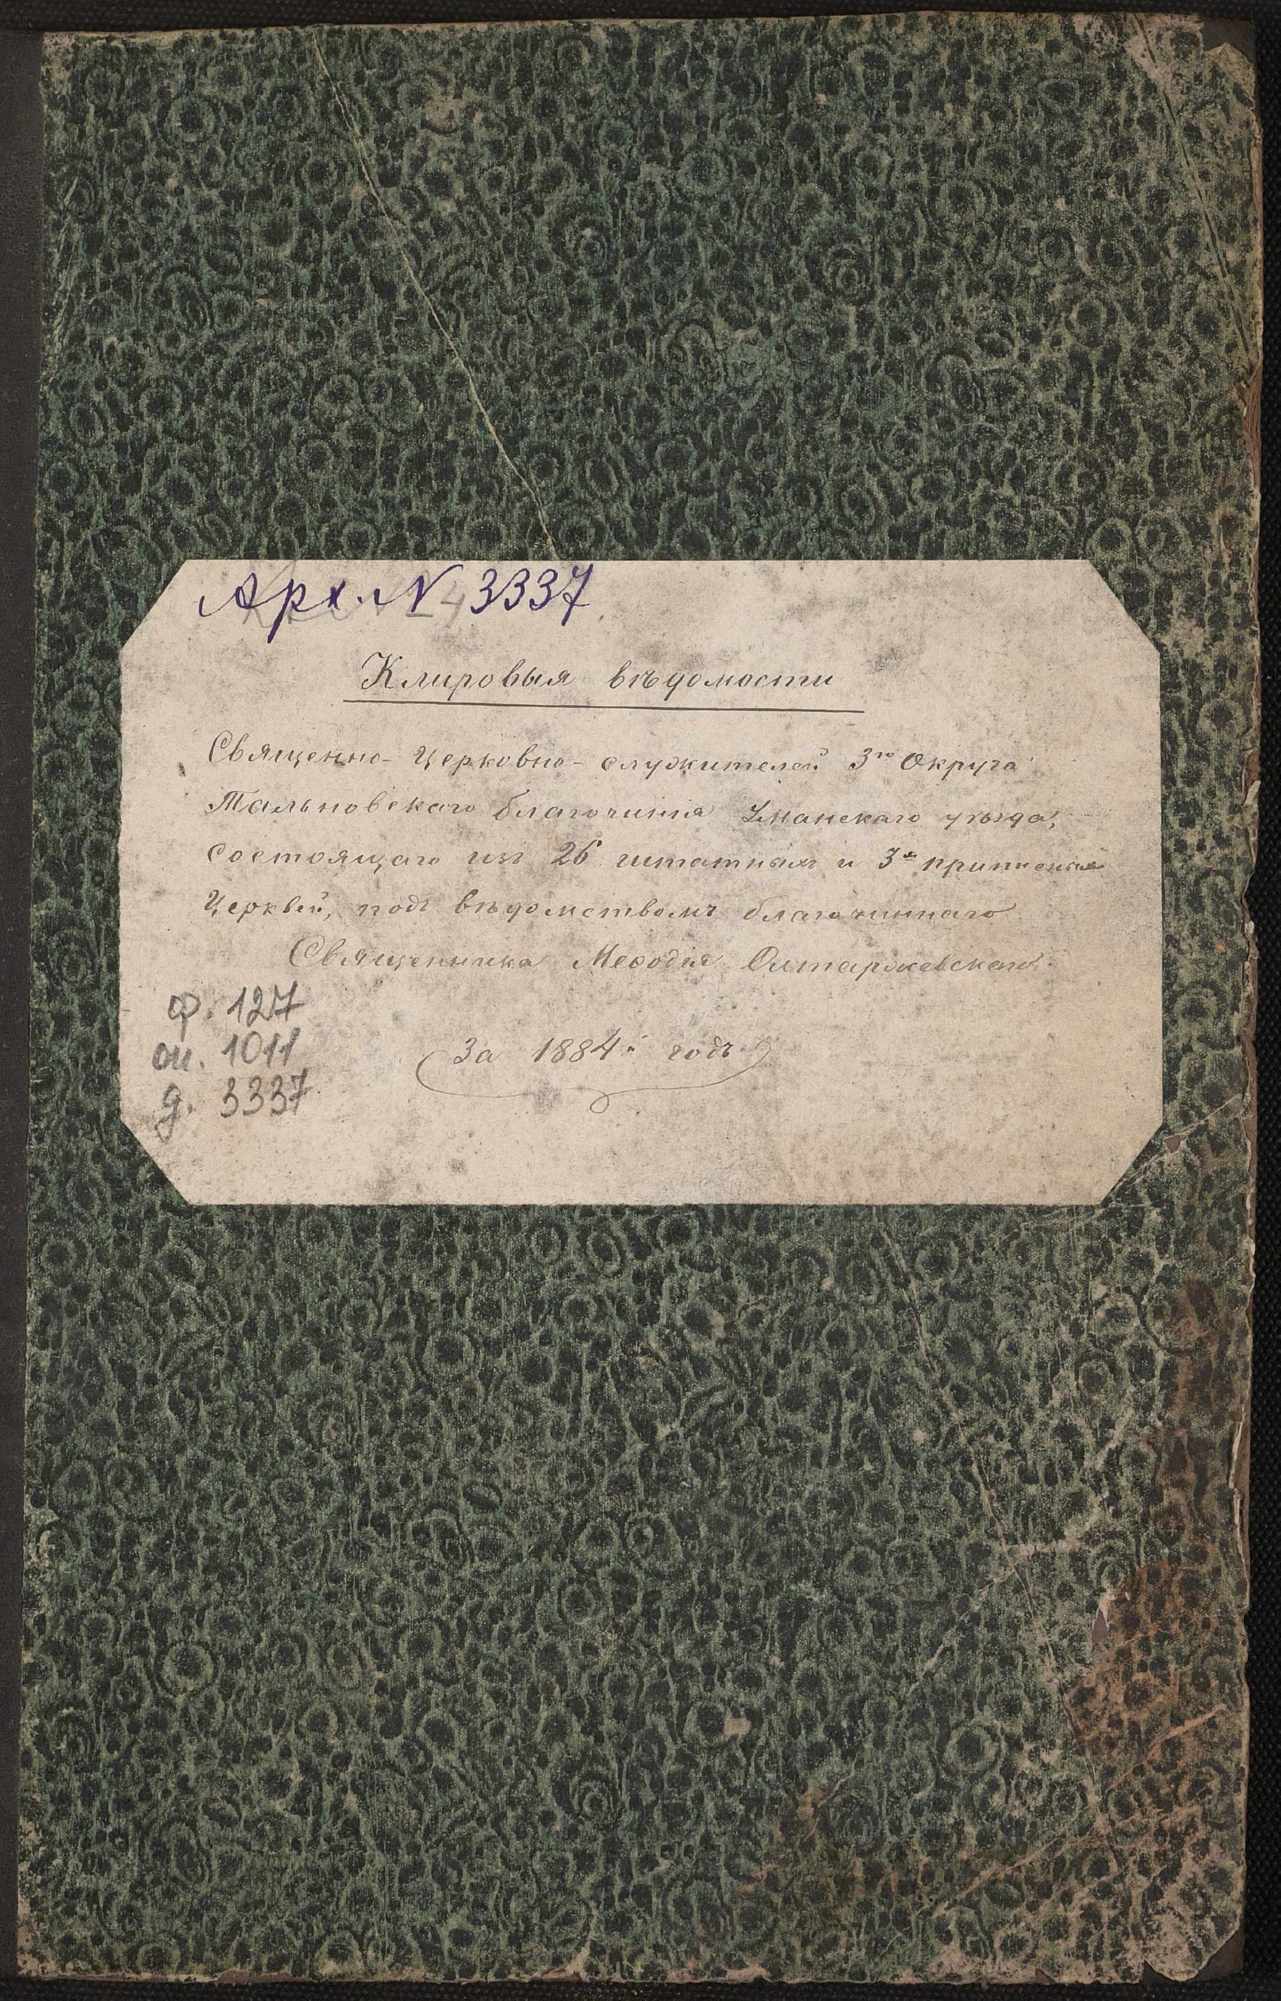 Арх. N 3337
Клировыя вѣдомости
Священно-Церковно-служителей 3го Округа
Тальновскаго благочинія Уманскаго уѣзда,
состоящаго изъ 26 штатныхъ и 3х приписныхъ
Церквей, подъ вѣдомствомъ благочиннаго
Священника Меѳодія Олтаржевскаго
За 1884й годъ
ф. 127
оп. 1011
д. 3337